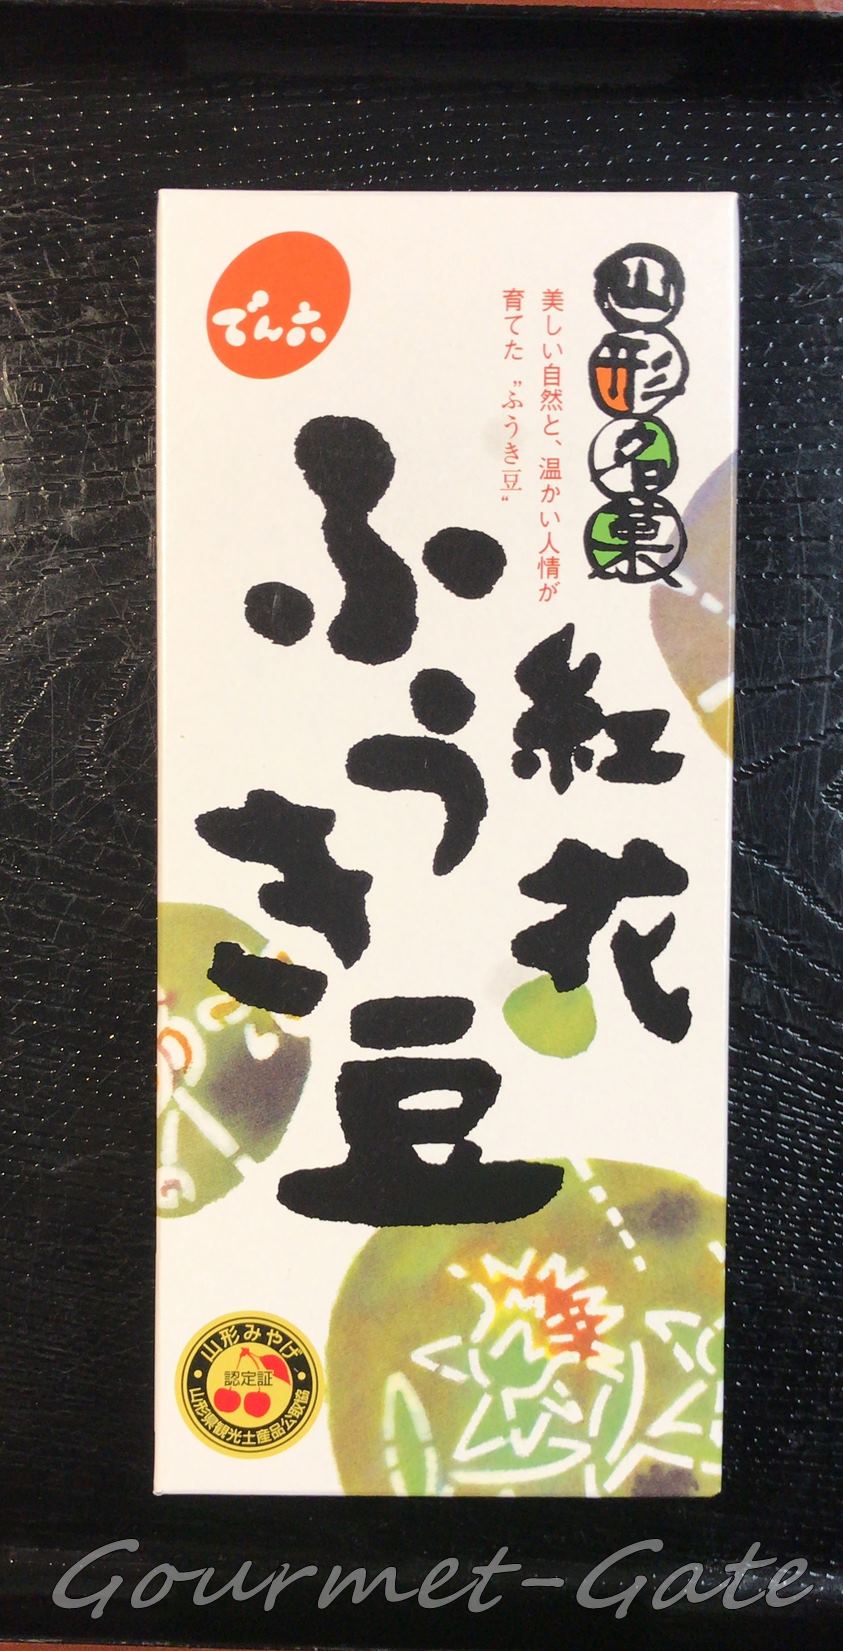 でん六
山形名菓
美しい自然と、温かい人情が
育てた〝ふうき豆〟
紅花
ふうき豆
山形みやげ
認定証
山形県観光土産品公取協
Gourmet-Gate